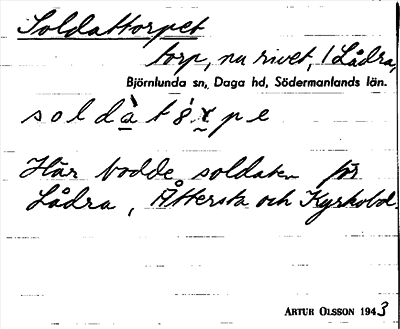 Soldattorpet
torp, nu rivet, / Lådra,
Björnlunda sn, Daga hd, Södermanlands län.
s o l d à t ò r p e
Här bodde soldaten för
Lådra, Åttersta och Kyrkobol.
ARTUR OLSSON 1943